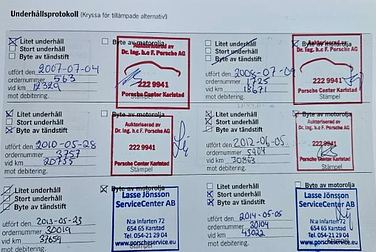 Underhållsprotokoll (Kryssa för tillämpade alternativ)
Litet underhåll
Stort underhåll
Byte av tändstift
Byte av motorolja
utfört den 2007-07-04
ordernummer 563
vid km
mot debitering.
Auktoriserad av
Dr. Ing. h.c F. Porsche AG
222 9941
Porsche Center Karlstad
Stämpel
Litet underhåll
Stort underhåll
Byte av tändstift
Byte av motorolja
utfört den
ordernummer 1725
vid km 18671
mot debitering.
Auktoriserad av
Dr. Ing. h.c F. Porsche AG
222 9941
Porsche Center Karlstad
Stämpel
Litet underhåll
Stort underhåll
Byte av tändstift
Byte av motorolja
utfört den 2010-05-28
ordernummer
vid km
mot debitering.
Auktoriserad av
Dr. Ing. h.c F. Porsche AG
222 9941
Porsche Center Karlstad
Stämpel
Litet underhåll
Stort underhåll
Byte av tändstift
Byte av motorolja
utfört den 2012-06-05
ordernummer
vid km 30863
mot debitering.
Auktoriserad av
Dr. Ing. h.c F. Porsche AG
222 9941
Porsche Center Karlstad
Litet underhåll
Stort underhåll
Byte av tändstift
Byte av motorolja
utfört den 2013-05-23
ordernummer 30019
vid km 37659
mot debitering.
Lasse Jönsson
ServiceCenter AB
N:a Infarten 72
654 65 Karstad
Tel. 054-21 29 04
www.porscheservice.eu
Litet underhåll
Stort underhåll
Byte av tändstift
Byte av motorolja
utfört den 2014-05-05
ordernummer
vid km 43022
mot debitering.
Lasse Jönsson
ServiceCenter AB
N:a Infarten 72
654 65 Karstad
Tel. 054-21 29 04
www.porscheservice.eu